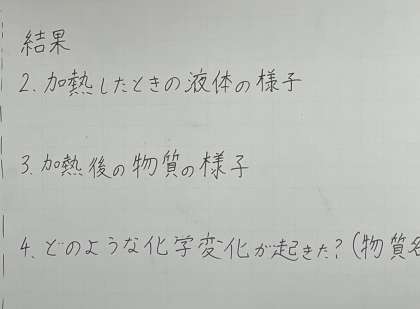 結果
2. 加熱したときの液体の様子
3. 加熱後の物質の様子
4. どのような化学変化が起きた?(物質名